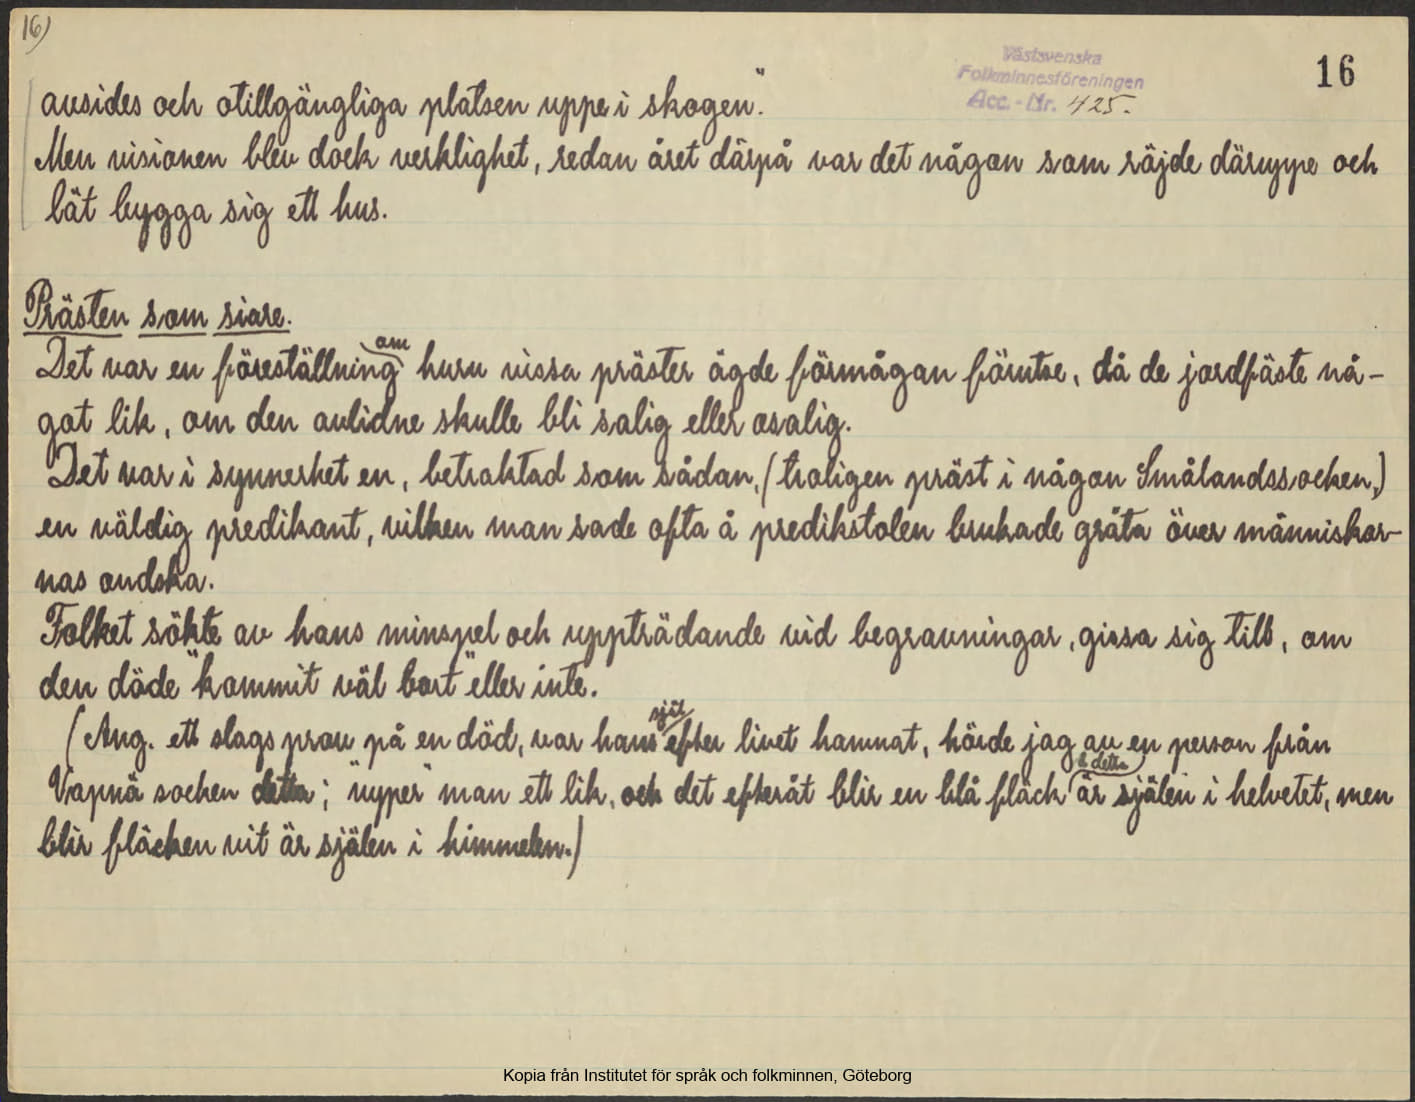 16)
Västsvenska
Folkminnesföreningen
Acc.-Nr. 425.
16
avsides och otillgängliga platsen uppe i skogen."
Men visionen blev dock verklighet, redan året därpå var det någon som röjde däruppe och
lät bygga sig ett hus.
Prästen som siare.
Det var en föreställning om huru vissa präster ägde förmågan förutse, då de jordfäste nå-
got lik, om den avlidne skulle bli salig eller osalig.
Det var i synnerhet en, betraktad som sådan, (troligen präst i någon Smålandssocken,)
en väldig predikant, vilken man sade ofta å predikstolen brukade gråta över människor-
nas ondska.
Folket sökte av hans minspel och uppträdande vid begravningar, gissa sig till, om
den döde "kommit väl bort" eller inte.
(Ang. ett slags prov på en död, var hans själ efter livet hamnat, hörde jag av en person från
Vapnö socken detta; "nyper" man ett lik, och det efteråt blir en blå fläck å detta är själen i helvetet, men
blir fläcken vit är själen i himmelen.)
Kopia från Institutet för språk och folkminnen, Göteborg